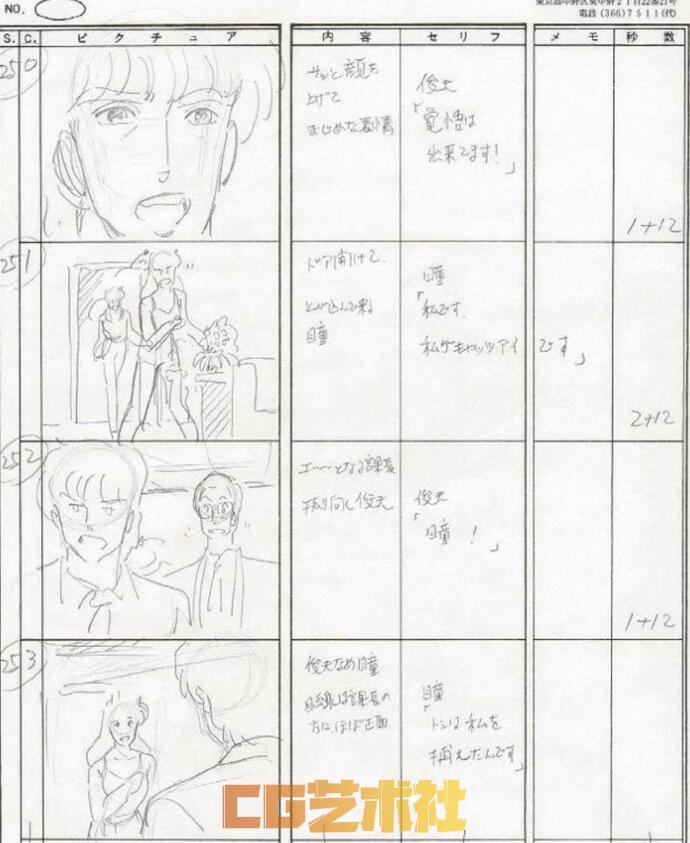 NO.
東京都中野区東中野2丁目22番21号
電話(366)7511(代)
S. C. ピクチュア 内容 セリフ メモ 秒数
250
サッと顔を
上げて
まじめな表情
俊夫
「覚悟は
出来てます!」
1+12
251
ドア開けて、
とび込んで来る
瞳
瞳
「私です。
私がキャッツアイです」
2+12
252
エ〜〜となる課長
振り向く俊夫
俊夫
「瞳!」
1+12
253
俊夫なめ瞳
目線は課長の
方に、ほぼ正面
瞳
「トシは私を
捕えたんです」
CG艺术社